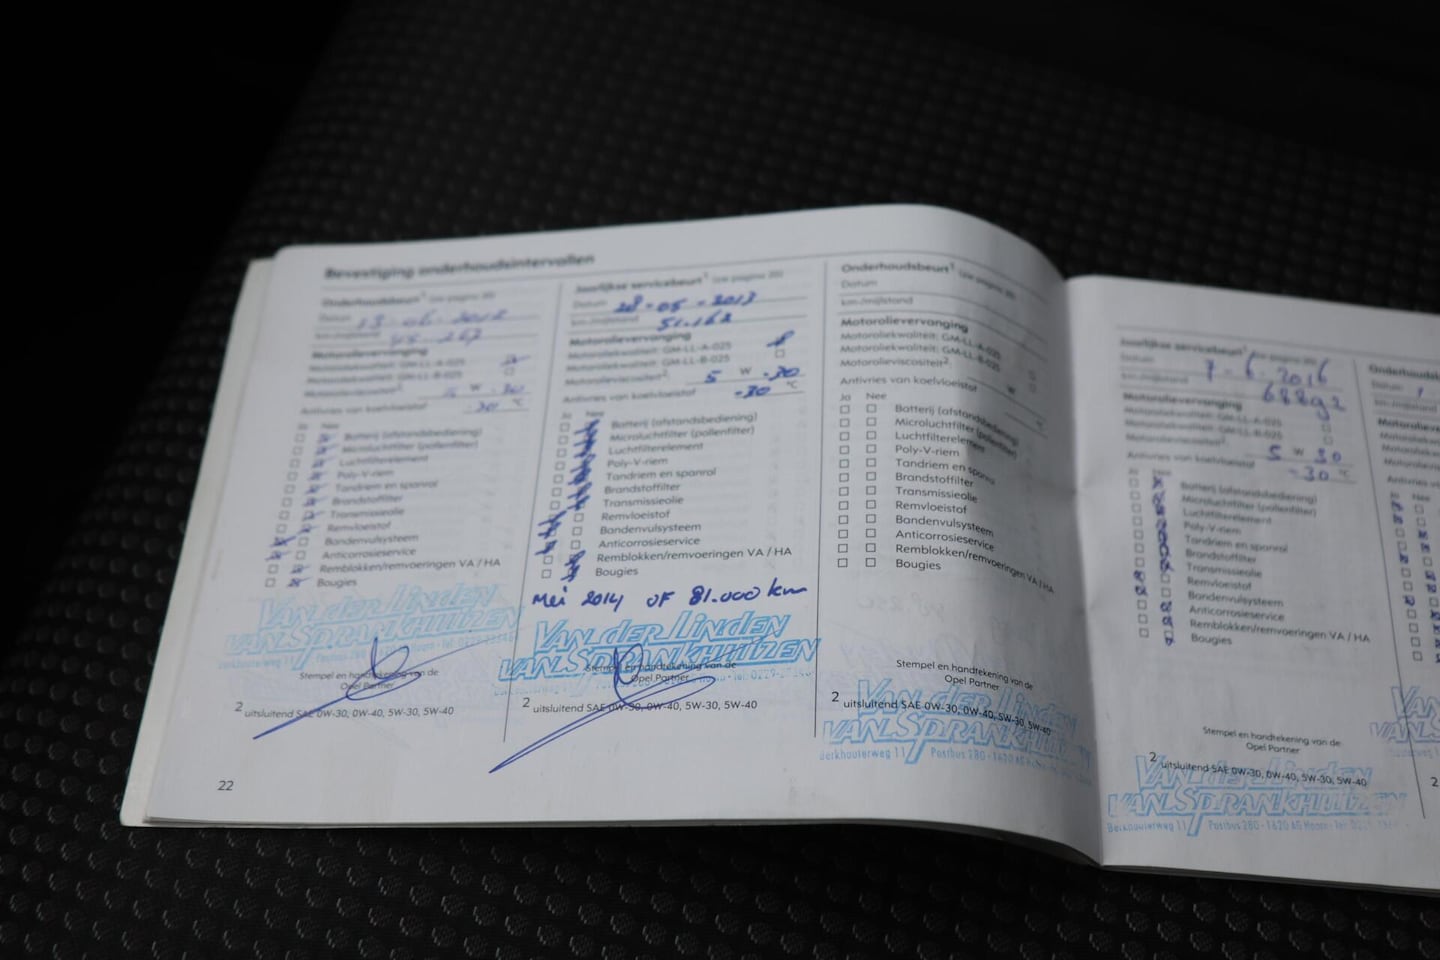 Bevestiging onderhoudsintervallen
Onderhoudsbeurt¹ (zie pagina 20)
Datum 13-06-2012
km-/mijlstand
Motorolievervanging
Motoroliekwaliteit: GM-LL-A-025
Motoroliekwaliteit: GM-LL-B-025
Motorolieviscositeit² 5 W -30
Antivries van koelvloeistof -30 °C
Ja Nee
Batterij (afstandsbediening)
Microluchtfilter (pollenfilter)
Luchtfilterelement
Poly-V-riem
Tandriem en spanrol
Brandstoffilter
Transmissieolie
Remvloeistof
Bandenvulsysteem
Anticorrosieservice
Remblokken/remvoeringen VA / HA
Bougies
VAN der LINDEN
VAN SPRANKHUIZEN
Berkhouterweg 11 Postbus 280 - 1620 AG Hoorn - Tel. 0229-
Stempel en handtekening van de
Opel Partner
2 uitsluitend SAE 0W-30, 0W-40, 5W-30, 5W-40
22
Jaarlijkse servicebeurt¹ (zie pagina 20)
Datum 28-05-2013
km-/mijlstand 51.162
Motorolievervanging
Motoroliekwaliteit: GM-LL-A-025
Motoroliekwaliteit: GM-LL-B-025
Motorolieviscositeit²: 5 W -30
Antivries van koelvloeistof -30 °C
Ja Nee
Batterij (afstandsbediening)
Microluchtfilter (pollenfilter)
Luchtfilterelement
Poly-V-riem
Tandriem en spanrol
Brandstoffilter
Transmissieolie
Remvloeistof
Bandenvulsysteem
Anticorrosieservice
Remblokken/remvoeringen VA / HA
Bougies
Mei 2014 OF 81.000 km
VAN der LINDEN
VAN SPRANKHUIZEN
Stempel en handtekening van de
Opel Partner
2 uitsluitend SAE 0W-30, 0W-40, 5W-30, 5W-40
Onderhoudsbeurt¹ (zie pagina 20)
Datum
km-/mijlstand
Motorolievervanging
Motoroliekwaliteit: GM-LL-A-025
Motoroliekwaliteit: GM-LL-B-025
Motorolieviscositeit²: W
Antivries van koelvloeistof °C
Ja Nee
Batterij (afstandsbediening)
Microluchtfilter (pollenfilter)
Luchtfilterelement
Poly-V-riem
Tandriem en spanrol
Brandstoffilter
Transmissieolie
Remvloeistof
Bandenvulsysteem
Anticorrosieservice
Remblokken/remvoeringen VA / HA
Bougies
Stempel en handtekening van de
Opel Partner
2 uitsluitend SAE 0W-30, 0W-40, 5W-30, 5W-40
VAN der LINDEN
VAN SPRANKHUIZEN
Berkhouterweg 11 Postbus 280 - 1620 AG
Jaarlijkse servicebeurt¹ (zie pagina 20)
Datum 7-6-2016
km-/mijlstand 68892
Motorolievervanging
Motoroliekwaliteit: GM-LL-A-025
Motoroliekwaliteit: GM-LL-B-025
Motorolieviscositeit²: 5 W 30
Antivries van koelvloeistof -30 °C
Ja Nee
Batterij (afstandsbediening)
Microluchtfilter (pollenfilter)
Luchtfilterelement
Poly-V-riem
Tandriem en spanrol
Brandstoffilter
Transmissieolie
Remvloeistof
Bandenvulsysteem
Anticorrosieservice
Remblokken/remvoeringen VA / HA
Bougies
Stempel en handtekening van de
Opel Partner
2 uitsluitend SAE 0W-30, 0W-40, 5W-30, 5W-40
VAN der LINDEN
VAN SPRANKHUIZEN
Berkhouterweg 11 Postbus 280 - 1620 AG Hoorn - Tel.
Datum
Ja Nee
2